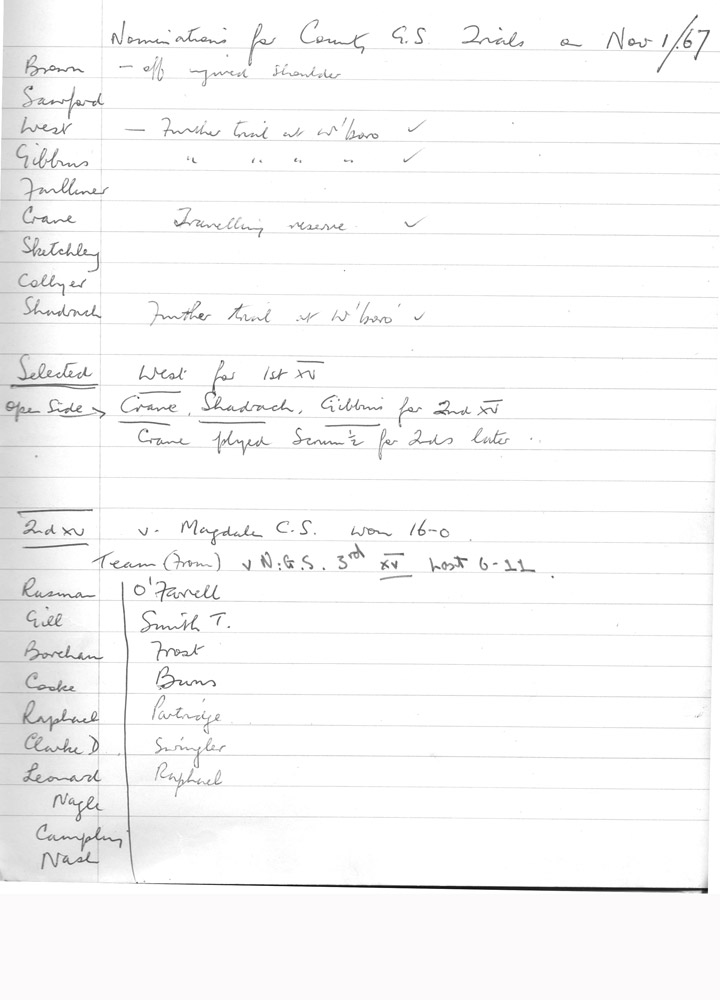 Nominations for County G.S. Trials on Nov 1/67
Brown — off injured shoulder
Sawford
West — Further trial at W'boro ✓
Gibbins " " " " ✓
Faulkner
Crane Travelling reserve ✓
Sketchley
Collyer
Shadrach Further trial at W'boro' ✓
Selected West for 1st XV
Open Side → Crane, Shadrach, Gibbins for 2nd XV
Crane played Scrum ½ for 2nds later ..
2nd XV v. Magdalen C.S. won 16-0
Team (From) v N.G.S. 3rd XV Lost 6-11.
Rusman O'Farrell
Gill Smith T.
Borehan Frost
Cooke Burns
Raphael Partridge
Clarke D Swingler
Leonard Raphael
Nagle
Campling
Nash